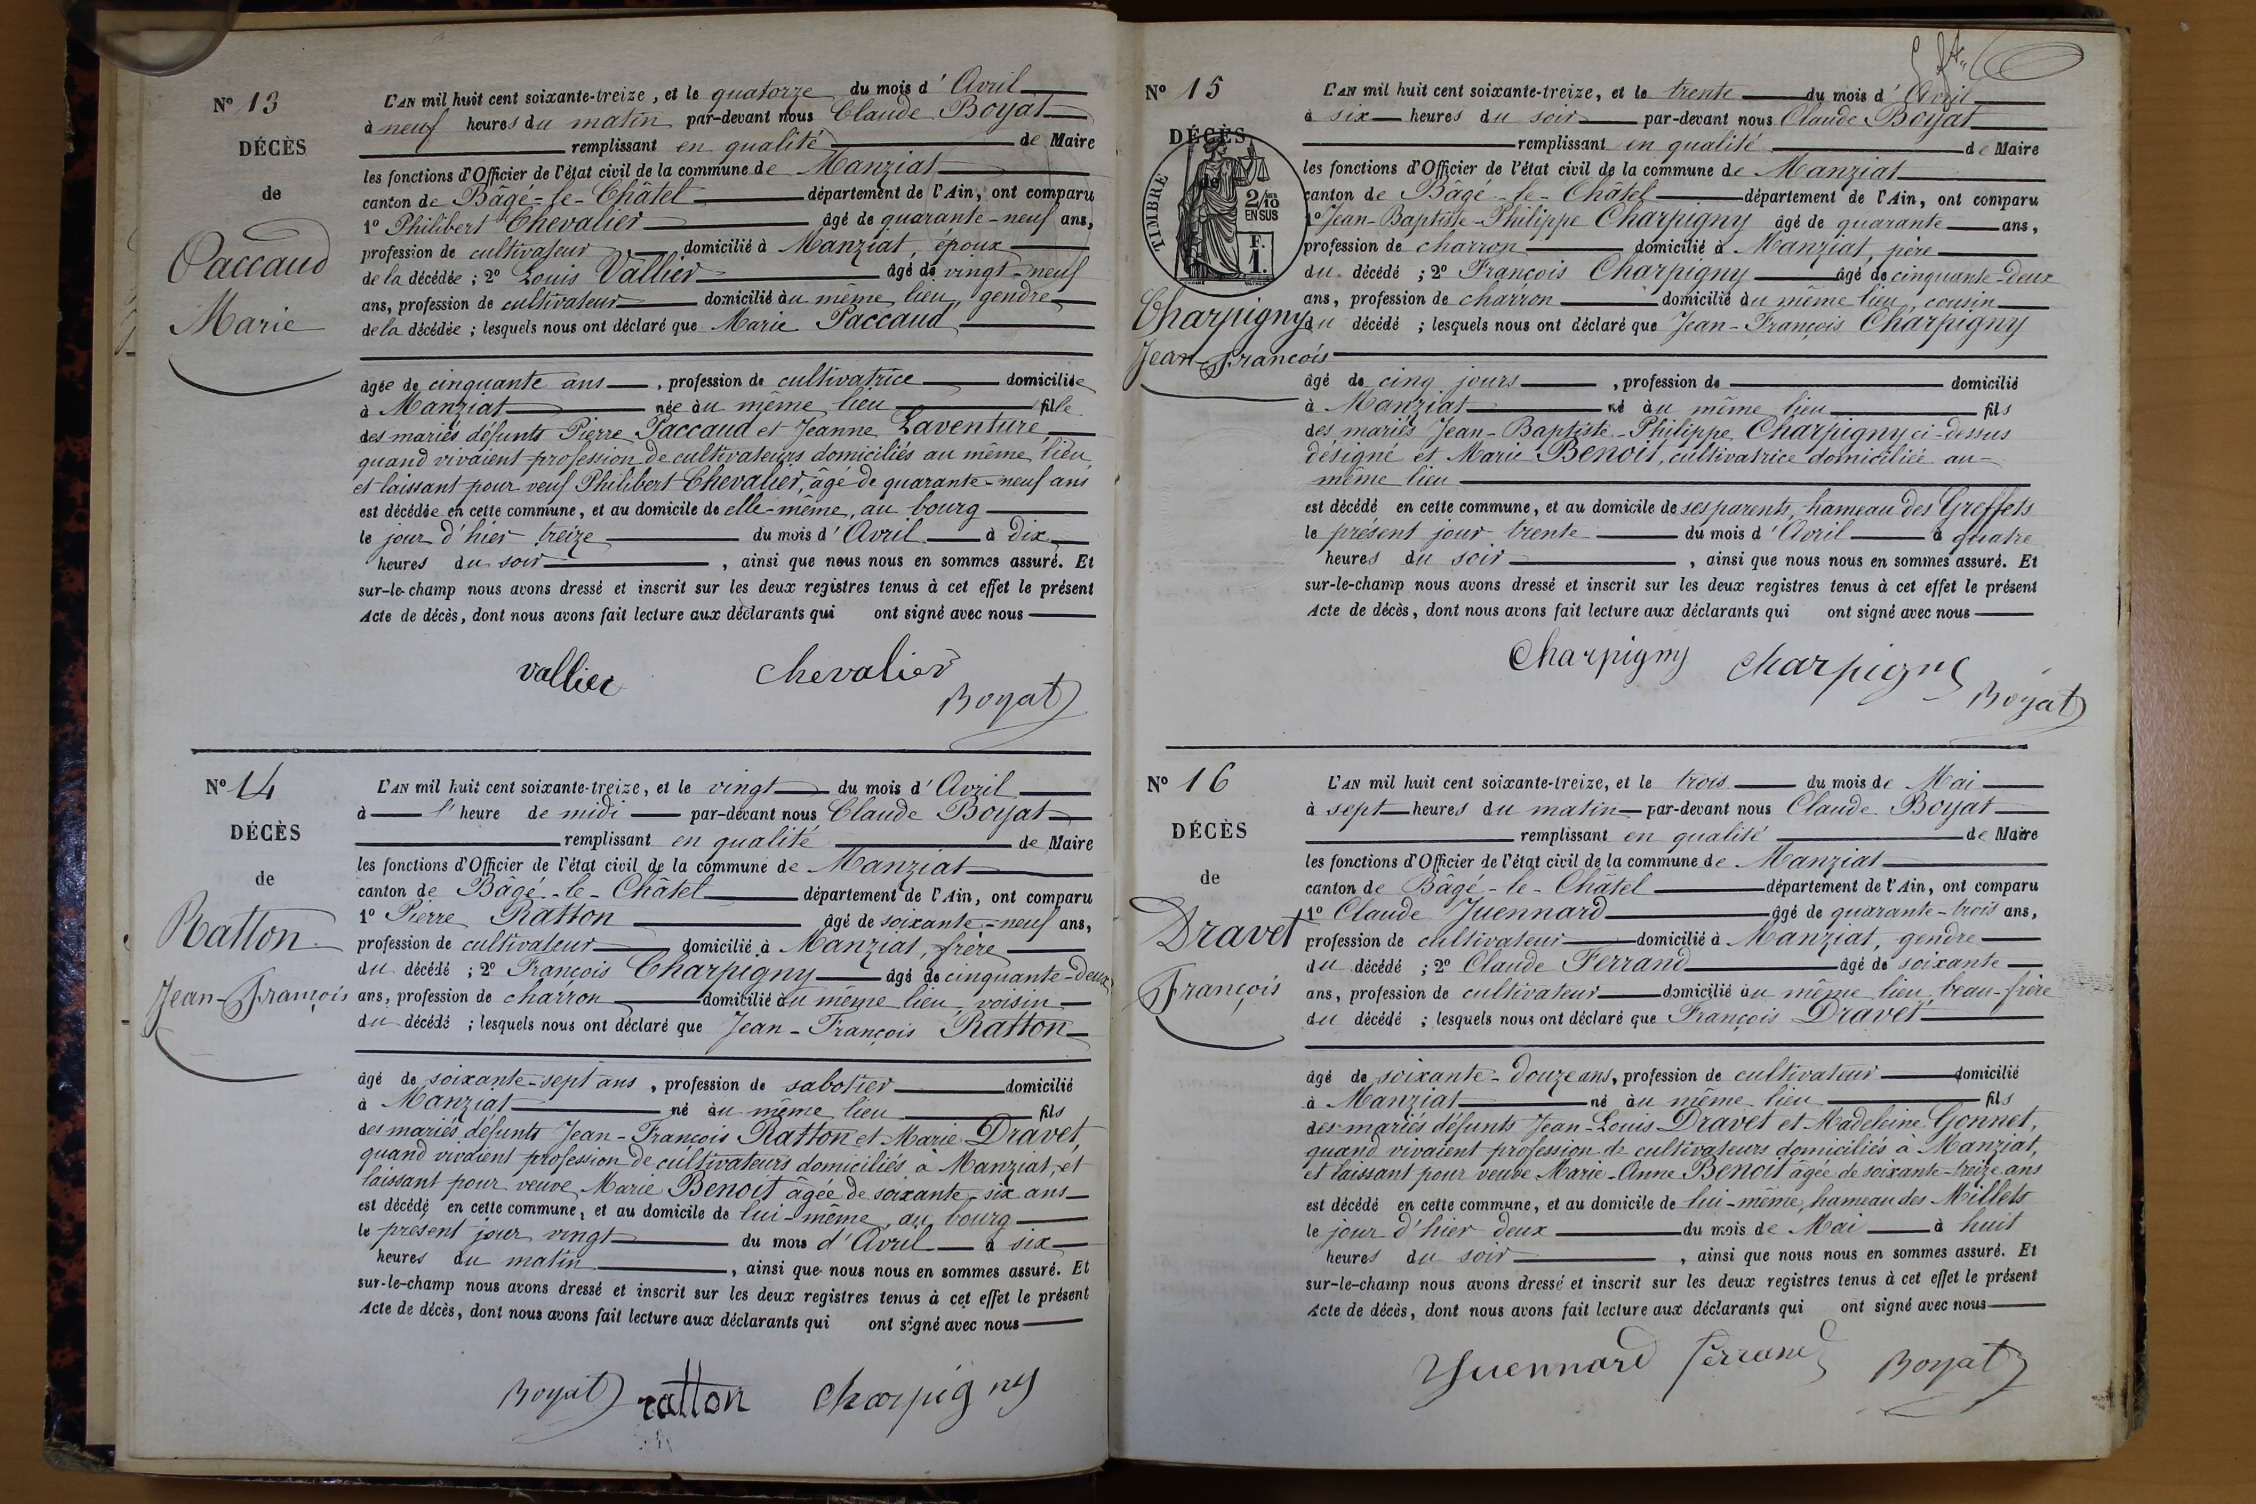 N° 13
DÉCÈS
de
Paccaud
Marie
L'AN mil huit cent soixante-treize, et le quatorze du mois d'Avril
à neuf heures du matin par-devant nous Claude Boyat
remplissant en qualité de Maire
les fonctions d'Officier de l'état civil de la commune de Manziat
canton de Bâgé-le-Châtel département de l'Ain, ont comparu
1° Philibert Chevalier âgé de quarante-neuf ans,
profession de cultivateur domicilié à Manziat, époux
de la décédée ; 2° Louis Vallier âgé de vingt-neuf
ans, profession de cultivateur domicilié au même lieu, gendre
de la décédée ; lesquels nous ont déclaré que Marie Paccaud
âgée de cinquante ans, profession de cultivatrice domiciliée
à Manziat née au même lieu fille
des mariés défunts Pierre Paccaud et Jeanne Laventure,
quand vivaient profession de cultivateurs domiciliés au même lieu,
et laissant pour veuf Philibert Chevalier, âgé de quarante-neuf ans
est décédée en cette commune, et au domicile de elle-même, au bourg
le jour d'hier treize du mois d'Avril à dix
heures du soir, ainsi que nous nous en sommes assuré. Et
sur-le-champ nous avons dressé et inscrit sur les deux registres tenus à cet effet le présent
Acte de décès, dont nous avons fait lecture aux déclarants qui ont signé avec nous
vallier chevalier
Boyat
N° 14
DÉCÈS
de
Ratton
Jean-François
L'AN mil huit cent soixante-treize, et le vingt du mois d'Avril
à l'heure de midi par-devant nous Claude Boyat
remplissant en qualité de Maire
les fonctions d'Officier de l'état civil de la commune de Manziat
canton de Bâgé-le-Châtel département de l'Ain, ont comparu
1° Pierre Ratton âgé de soixante-neuf ans,
profession de cultivateur domicilié à Manziat, frère
du décédé ; 2° François Charpigny âgé de cinquante-deux
ans, profession de charron domicilié au même lieu, voisin
du décédé ; lesquels nous ont déclaré que Jean-François Ratton
âgé de soixante-sept ans, profession de sabotier domicilié
à Manziat né au même lieu fils
des mariés défunts Jean-François Ratton et Marie Dravet,
quand vivaient profession de cultivateurs domiciliés à Manziat, et
laissant pour veuve Marie Benoit âgée de soixante-six ans
est décédé en cette commune, et au domicile de lui-même, au bourg
le présent jour vingt du mois d'Avril à six
heures du matin, ainsi que nous nous en sommes assuré. Et
sur-le-champ nous avons dressé et inscrit sur les deux registres tenus à cet effet le présent
Acte de décès, dont nous avons fait lecture aux déclarants qui ont signé avec nous
Boyat ratton charpigny
N° 15
DÉCÈS
de
TIMBRE
2/10
EN SUS
F.
1.
Charpigny
Jean-François
L'AN mil huit cent soixante-treize, et le trente du mois d'Avril
à six heures du soir par-devant nous Claude Boyat
remplissant en qualité de Maire
les fonctions d'Officier de l'état civil de la commune de Manziat
canton de Bâgé-le-Châtel département de l'Ain, ont comparu
1° Jean-Baptiste-Philippe Charpigny âgé de quarante ans,
profession de charron domicilié à Manziat, père
du décédé ; 2° François Charpigny âgé de cinquante-deux
ans, profession de charron domicilié au même lieu, cousin
du décédé ; lesquels nous ont déclaré que Jean-François Charpigny
âgé de cinq jours, profession de domicilié
à Manziat né au même lieu fils
des mariés Jean-Baptiste-Philippe Charpigny ci-dessus
désigné et Marie Benoit, cultivatrice domiciliée au-
même lieu
est décédé en cette commune, et au domicile de ses parents, hameau des Greffets
le présent jour trente du mois d'Avril à quatre
heures du soir, ainsi que nous nous en sommes assuré. Et
sur-le-champ nous avons dressé et inscrit sur les deux registres tenus à cet effet le présent
Acte de décès, dont nous avons fait lecture aux déclarants qui ont signé avec nous
Charpigny charpigny
Boyat
N° 16
DÉCÈS
de
Dravet
François
L'AN mil huit cent soixante-treize, et le trois du mois de Mai
à sept heures du matin par-devant nous Claude Boyat
remplissant en qualité de Maire
les fonctions d'Officier de l'état civil de la commune de Manziat
canton de Bâgé-le-Châtel département de l'Ain, ont comparu
1° Claude Juennard âgé de quarante-trois ans,
profession de cultivateur domicilié à Manziat, gendre
du décédé ; 2° Claude Ferrand âgé de soixante
ans, profession de cultivateur domicilié au même lieu, beau-frère
du décédé ; lesquels nous ont déclaré que François Dravet
âgé de soixante-douze ans, profession de cultivateur domicilié
à Manziat né au même lieu fils
des mariés défunts Jean-Louis Dravet et Madeleine Gonnet,
quand vivaient profession de cultivateurs domiciliés à Manziat,
et laissant pour veuve Marie-Anne Benoit âgée de soixante-treize ans
est décédé en cette commune, et au domicile de lui-même, hameau des Millets
le jour d'hier deux du mois de Mai à huit
heures du soir, ainsi que nous nous en sommes assuré. Et
sur-le-champ nous avons dressé et inscrit sur les deux registres tenus à cet effet le présent
Acte de décès, dont nous avons fait lecture aux déclarants qui ont signé avec nous
Juennard ferrand Boyat